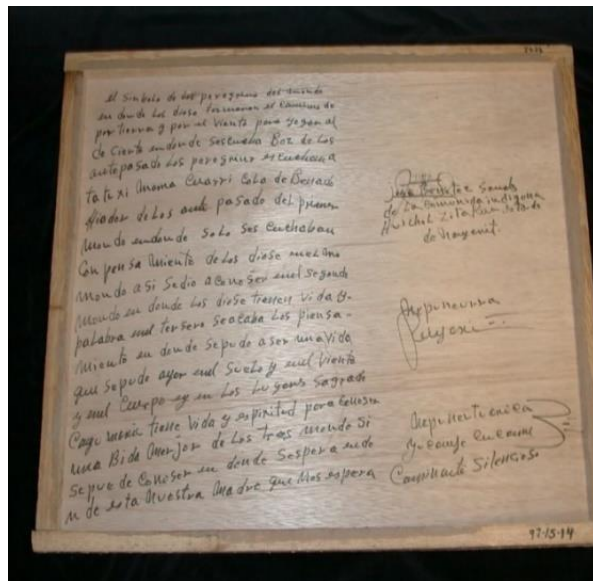 el Simbolo de los peregrino del mundo
en donde los diose formaran el Camino de
por tierra y por el Viento para yegar al
de Cierto en donde se escucha Boz de los
antepasado los peregrino escuchan a
tatuxi Cola de Benado
de los ante pasado del primer
Mondo en donde Solo Ses Cuchaban
Con pensa Miento de los diose
mondo a si Sedio aConoser en el Segundo
Mondo en donde los diose tienen Vida y
palabra en el tersero Se acaba los piensa-
miento en donde Sepudo aser una Vida
que Sepudo ayer en el Suelo y en el Viento
y en el Cuerpo ey en los Lugares Sagrado
tiene Vida y espiritud para Conoser
una Bida Menjor de los tres mondo Si
Sepue de Conoser en donde Sespera en do
n de esta Nuestra Madre que Nos espera
José Benítez Sanchez
de la Comonida indigena
Huichol
de Nayarit.
Caminante Silencioso
97-15-14